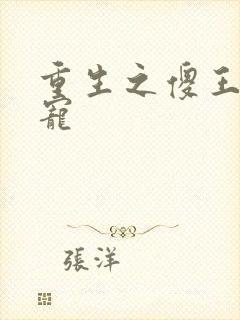 重生之傻王
寵
張洋